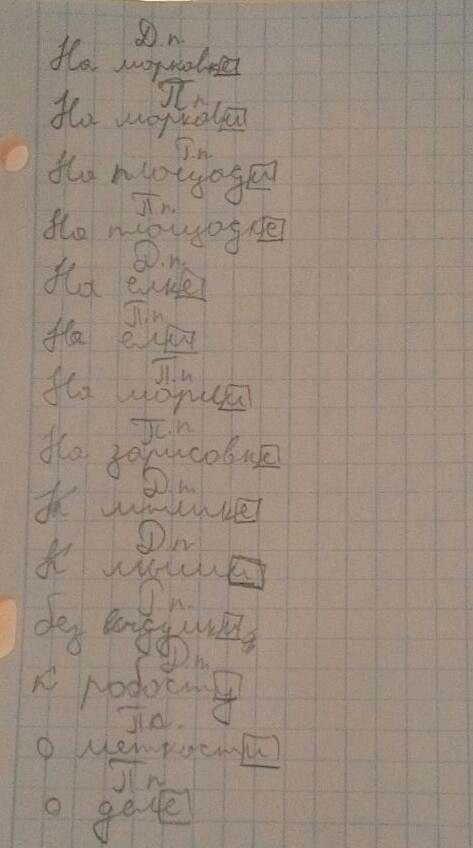 Д.п.
На морковке
П п.
На моркови
Т.п.
На площади
П п.
На площадке
Д.п.
На елке
П.п.
На ели
П.п.
На
П.п.
На зарисовке
Д.п.
К мышке
Д.п.
К мыши
Г п.
без выдумки
Д.п.
К робости
П п.
о меткости
П п
о деле